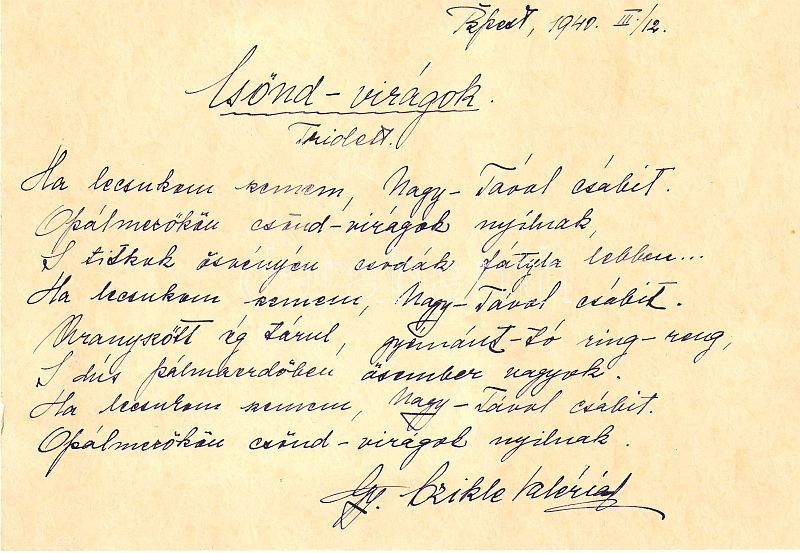 Bpest, 1940. III./12.
Csönd-virágok.
Triolett.
Ha lecsukom szemem, Nagy-Távol csábit.
Opálmezőkön csönd-virágok nyílnak,
S titkok ösvényén csodák fátyla lebben...
Ha lecsukom szemem, Nagy-Távol csábit.
Aranyszőtt ég tárul, gyémánt-tó ring-reng,
S dús pálmaerdőben ősember vagyok.
Ha lecsukom szemem, Nagy-Távol csábit.
Opálmezőkön csönd-virágok nyilnak.
Gy. Czikle Valéria